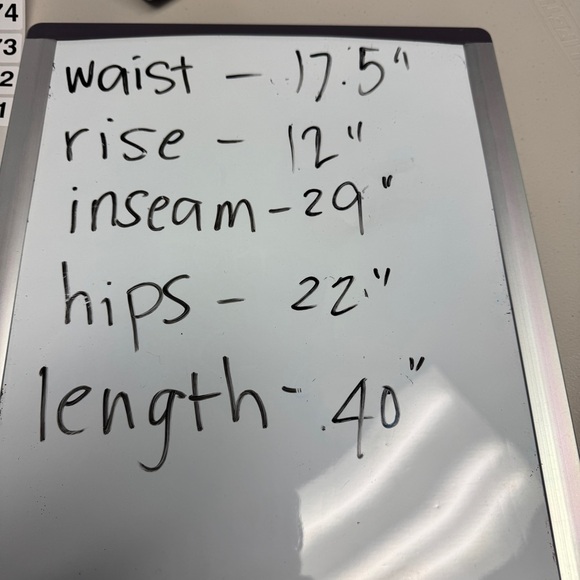 waist - 17.5"
rise - 12"
inseam - 29"
hips - 22"
length - 40"
74
73
2
1